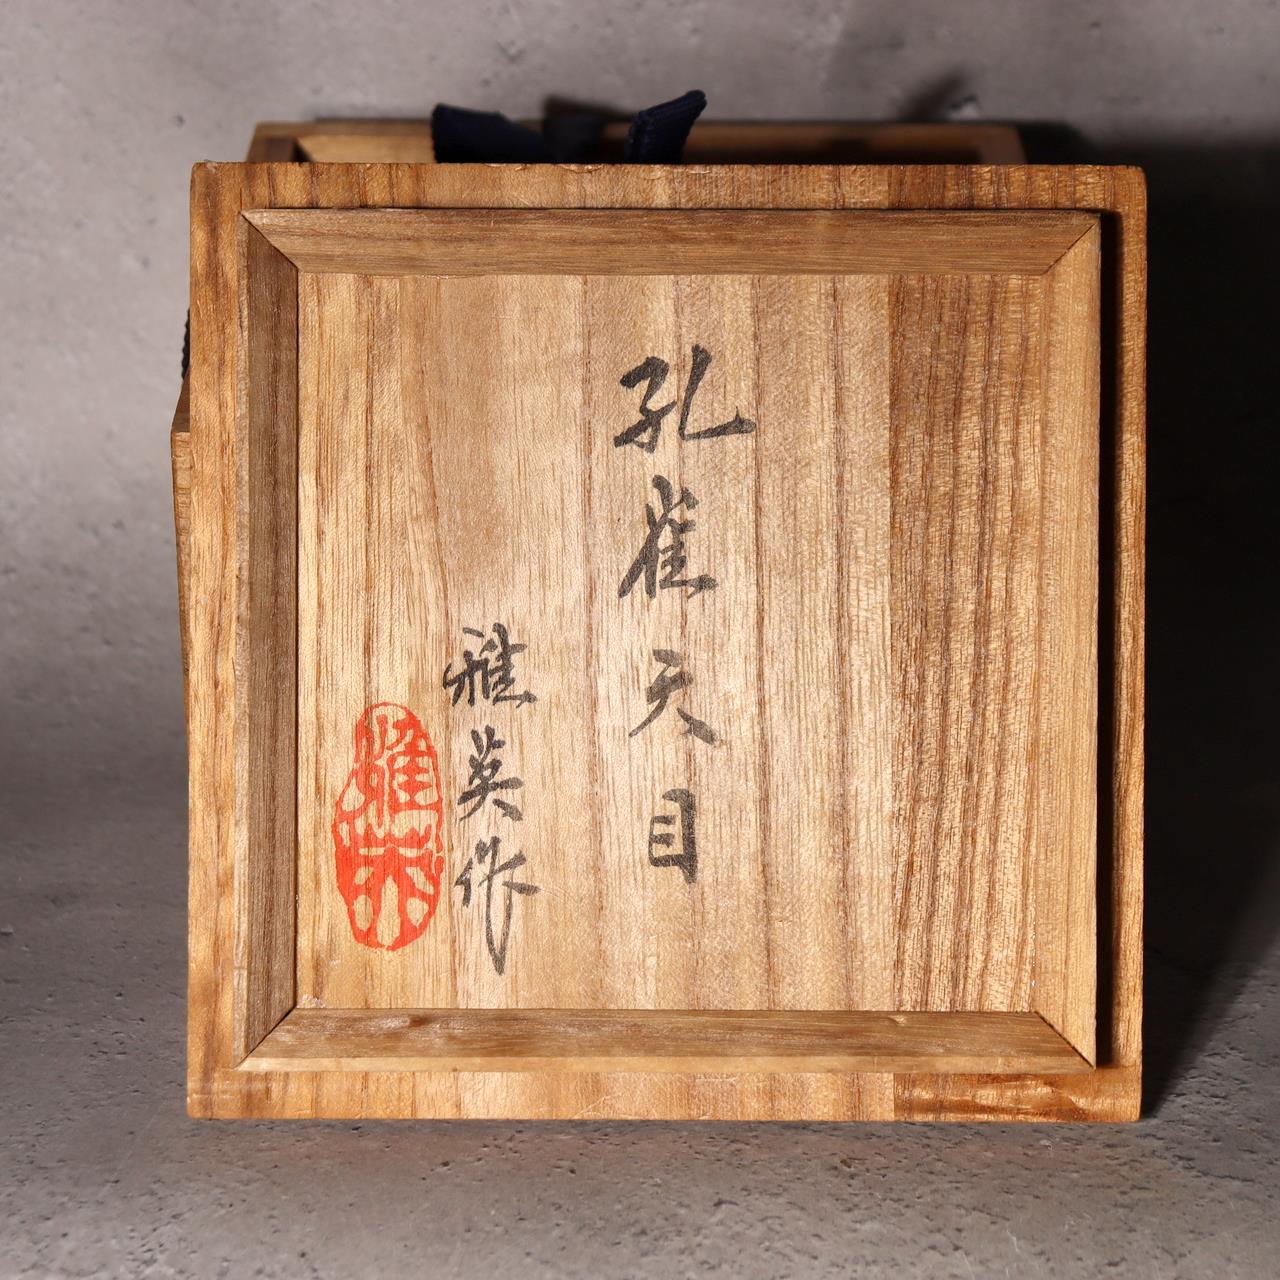 孔雀天目
雅英作
雅英